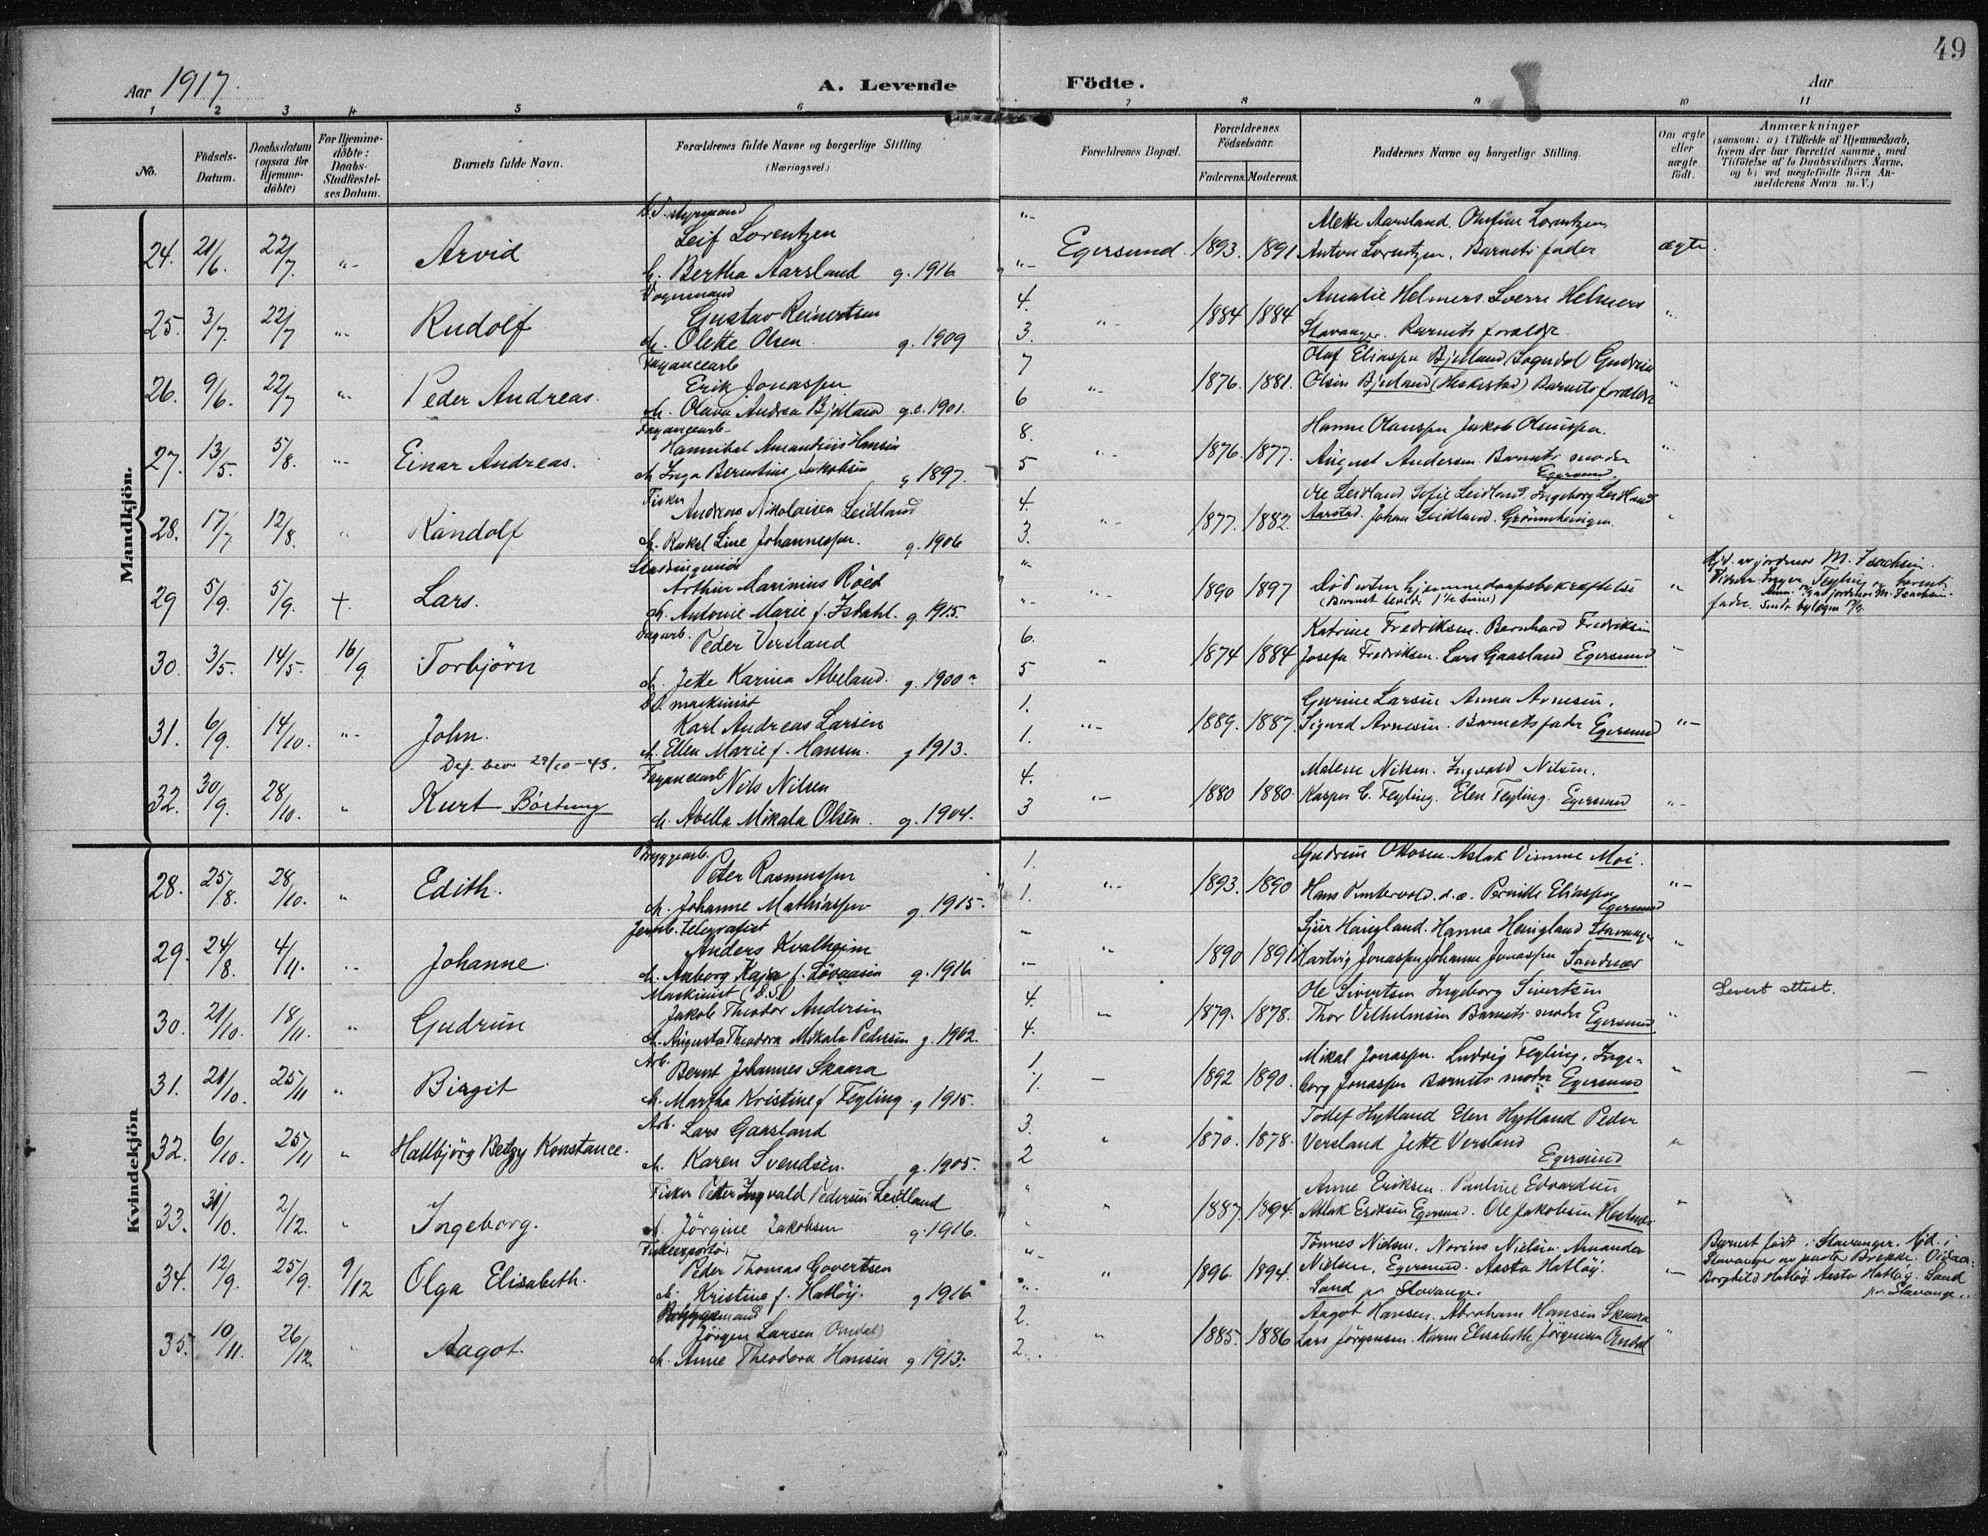 49
Aar 1917.
A. Levende Födte.
Aar
1 2 3 4 5 6 7 8 9 10 11
No.
Födsels-Datum.
Daabsdatum (ogsaa for Hjemmedöbte)
For Hjemmedöbte: Daabs Stadfestelses Datum.
Barnets fulde Navn.
Forældrenes fulde Navne og borgerlige Stilling (Næringsvei.)
Forældrenes Bopæl.
Forældrenes Födselsaar.
Faderens. Moderens.
Faddernes Navne og borgerlige Stilling.
Om ægte eller uægte født.
Anmærkninger
(saasom: a) i Tilfælde af Hjemmedaab,
hvem der har forrettet samme, med
Tilföielse af to Daabsvidners Navne,
og b) ved uægtefödte Börn Anmelderens Navn m. V.)
Mandkjön.
24. 21/6. 22/7 "- Arvid
Leif Lorentzen
Bertha Aarsland g. 1916
Egersund. 1893. 1891
Anton Lorentzen. Barnets fader
ægte.
25. 3/7. 22/7 "- Rudolf
Gustav Reinertsen
Olette Olsen. g. 1909
4. 3. "- 1884 1884
Amalie Helmers. Sverre Helmers
Stavanger. Barnets forældre.
26. 9/6. 22/7 "- Peder Andreas.
Fayancearb
Erik Jonassen
Andrea g.c. 1901.
7 6 "- 1876. 1881.
Barnets forældre
27. 13/5. 5/8. "- Einar Andreas.
Fayancearb-
Inga Berentine Jakobsen g 1897.
8. 5 "- 1876. 1877.
August Andersen Barnets moder
Egersund
28. 17/7 12/8. " Randolf
Fisker
Andreas Nikolaisen Leidland
Rakel Line Johannessen. g. 1906
4. 3. "- 1877. 1882.
Ole Leidland. Sofie Leidland. Ingeborg Leidland
Aarstad. Johan Leidland.
29 5/9. 5/9. + Lars.
Arthur Marinius Röed
Antonie Marie f. g. 1915.
"- 1890 1897
Død uten hjemmedaapsbekræftelse
(Barnet levde 1 1/2 time)
30. 3/5. 14/5. 16/9 Torbjörn
Peder Versland
Jette Karina g. 1900
6. 5 " 1874 1884
Katrine Fredriksen. Bernhard Fredriksen
Josefa Fredriksen. Lars Gaasland Egersund
31. 6/9. 14/10. "- John.
D.S. maskinist
Karl Andreas Larsen
Ellen Marie f. Hansen. g 1913.
1. 1. "- 1889. 1887.
Gurine Larsen Anna Arnesen.
Sigurd Arnesen. Barnets fader Egersund "-
32. 30/9. 28/10. " Kurt
Fayancearb
Nils Nilsen
Abella Mikala Olsen. g. 1904.
4. 3 "- 1880 1880
Malene Nilsen. Ingvald Nilsen.
Kasper C. Feyling. Elen Feyling. Egersund "-
Kvindekjön
28. 25/8. 28/10. " Edith.
Bryggearb.
Peter Rasmussen
Johanne Mathiassen g 1915.
1. 1. "- 1893. 1890
Aslak Vimme Moi.
Pernille Eliassen
Egersund
29. 24/8. 4/11. "- Johanne.
Jernb. telegrafist
Anders Kvalheim
Kaja f. g. 1916
" 1890 1891
Hartvig Jonassen Johanne Jonassen Sandnæs
30. 21/10. 18/11. " Gudrun
Maskinist (D.S.)
Jakob Theodor Andersen
Augusta Theodora Mikala Pedersen g. 1902.
4. 4. "- 1879. 1878.
Ole Sivertsen Ingeborg Sivertsen
Thor Vilhelmsen Barnets moder Egersund
Levert attest.
31. 21/10. 25/11 " Birgit
Arb.
Bernt Johannes Skaara
Martha Kristine f Feyling. g 1915.
1 1. - 1892 1890.
Mikal Jonassen. Ludvig Feyling. Inge-
borg Jonassen Barnets moder Egersund
32. 6/10. 25/11 " Hallbjörg Betzy Konstance.
Arb.
Lars Gaasland
Karen Svendsen. g. 1905.
3. 2 " 1870. 1878.
Todef Hytland Elen Hytland Peder
Versland Jette Versland
Egersund
33. 31/10. 2/12. " Ingeborg.
Fisker Peter Ingvald Pedersen Leidland
Jörgine Jakobsen g. 1916.
" 1887. 1894.
Anne Eriksen. Pauline Edvardsen
Aslak Eriksen Egersund. Ole Jakobsen
34. 12/9. 25/9. 9/12 Olga Elisabeth.
Peder Thomas Govertsen
Kristine f. Hatlöy. g 1916
" 1896. 1894.
Tönnes Nielsen. Norius Nielsen. Amanda
Nielsen, Egersund. Aasta Hatlöy.
Sand pr Stavanger.
Barnet födt i Stavanger. Hjd. i
Stavanger av Brekke.
Borghild Hatlöy Aasta Hatlöy. Sand
pr. Stavanger.
35. 10/11. 26/12. " Aagot.
Jörgen Larsen Omdal
Anne Theodora Hansen g 1913.
2. 2. " 1885. 1886
Aagot Hansen. Abraham Hansen Skaara
Lars Jörgensen. Karen Elisabeth Jörgensen Omdal "